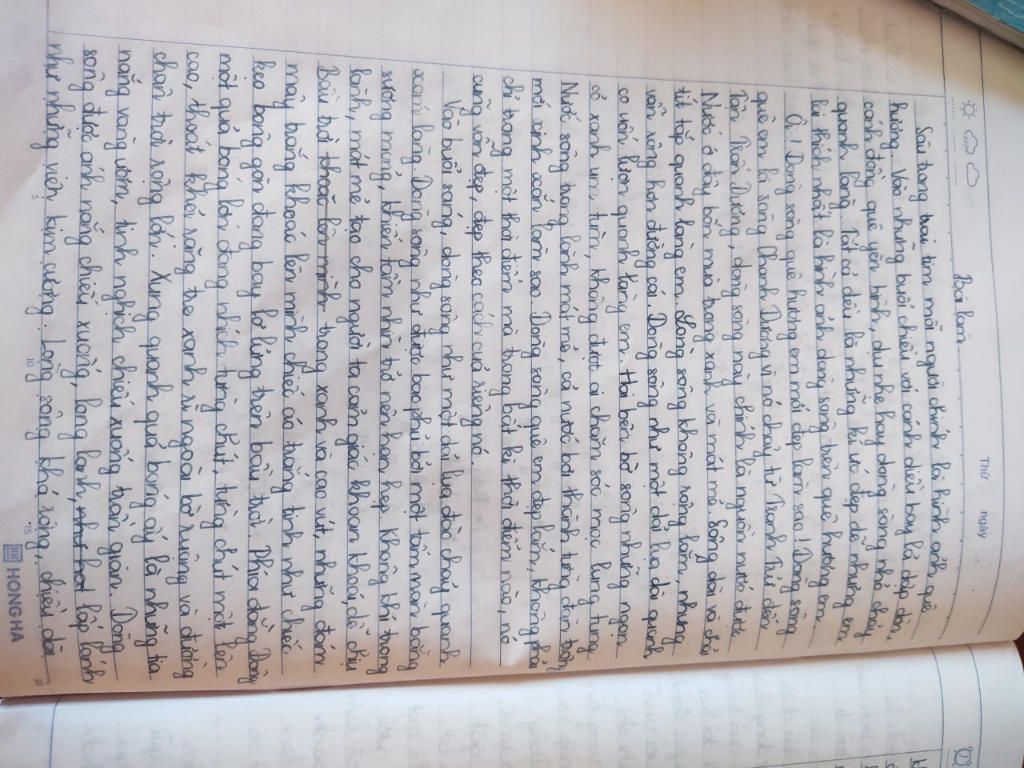 Thứ ngày
Bài làm
Sâu trong trái tim mỗi người chính là hình ảnh quê
hương. Với những buổi chiều với cánh diều bay là đà trên
cánh đồng quê yên bình, dịu nhẹ hay dòng sông nhỏ chảy
quanh làng. Tất cả đều là những kí ức đẹp đẽ nhưng em
lại thích nhất là hình ảnh dòng sông trên quê hương em.
Ôi! Dòng sông quê hương em mới đẹp làm sao! Dòng sông
quê em là sông Thanh Dương vì nó chảy từ Thanh Từ đến
tận Dương, dòng sông này chính là nguồn nước được
Nước ở đây bốn mùa trong xanh và mát mẻ. Sông dài và chảy
tít tắp quanh làng em. Lòng sông không rộng lắm, nhưng
vẫn rộng hơn đường cái. Dòng sông như một dải lụa đã quanh
co uốn lượn quanh làng em. Hai bên bờ sông những ngọn
cỏ xanh um tùm, không được ai chăm sóc mọc lung tung.
Nước sông trong lành mát mẻ, cả nước bơi thành từng đàn trông
mới xinh xắn làm sao. Dòng sông quê em đẹp lắm, không phải
chỉ trong một thời điểm mà trong bất kì thời điểm nào, nó
cũng vẫn đẹp, đẹp theo cách của riêng nó.
Vào buổi sáng, dòng sông như một dải lụa đào chảy quanh
xóm làng. Dòng sông như được bao phủ bởi một tấm màn bằng
sương mỏng, khiến tầm nhìn trở nên hạn hẹp. Không khí trong
lành, mát mẻ tạo cho người ta cảm giác khoan khoái, dễ chịu
Bầu trời trong xanh và cao vút, những đám
mây trắng khoác lên mình chiếc áo trắng tinh như chiếc
kẹo bông gòn đang bay lơ lửng trên bầu trời. Phía đằng Đông
một quả bóng lớn đang nhích từng chút, từng chút một lên
cao, thoát khỏi rặng tre xanh rì ngoài bờ ruộng và đường
chân trời rộng lớn. Xung quanh quả bóng ấy là những tia
nắng vàng ươm, tinh nghịch chiếu xuống trần gian. Dòng
sông được ánh nắng chiếu xuống, long lanh, lấp lánh
như những viên kim cương. Lòng sông khá rộng, chiều dài
5 10 15 20
HONG HA